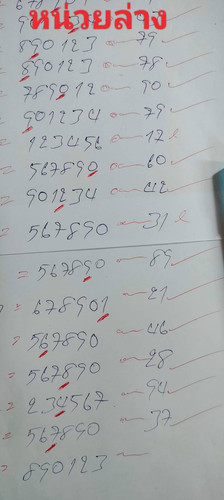 หน่วยล่าง
890123 79
890123 78
789012 90
901234 79
123456 12
567890 60
901234 42
567890 31
= 567890 89
= 678901 21
= 567890 46
= 567890 28
= 234567 94
= 567890 37
= 890123